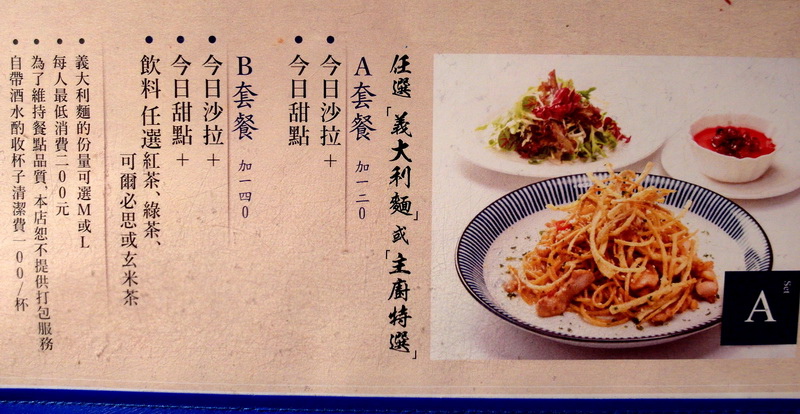 任選「義大利麵」或「主廚特選」
A套餐 加一二0
• 今日沙拉+
• 今日甜點
B套餐 加一四0
• 今日沙拉+
• 今日甜點+
• 飲料 任選紅茶、綠茶、
可爾必思或玄米茶
• 義大利麵的份量可選M或L
• 每人最低消費二00元
• 為了維持餐點品質,本店恕不提供打包服務
• 自帶酒水酌收杯子清潔費一00/杯
Set
A